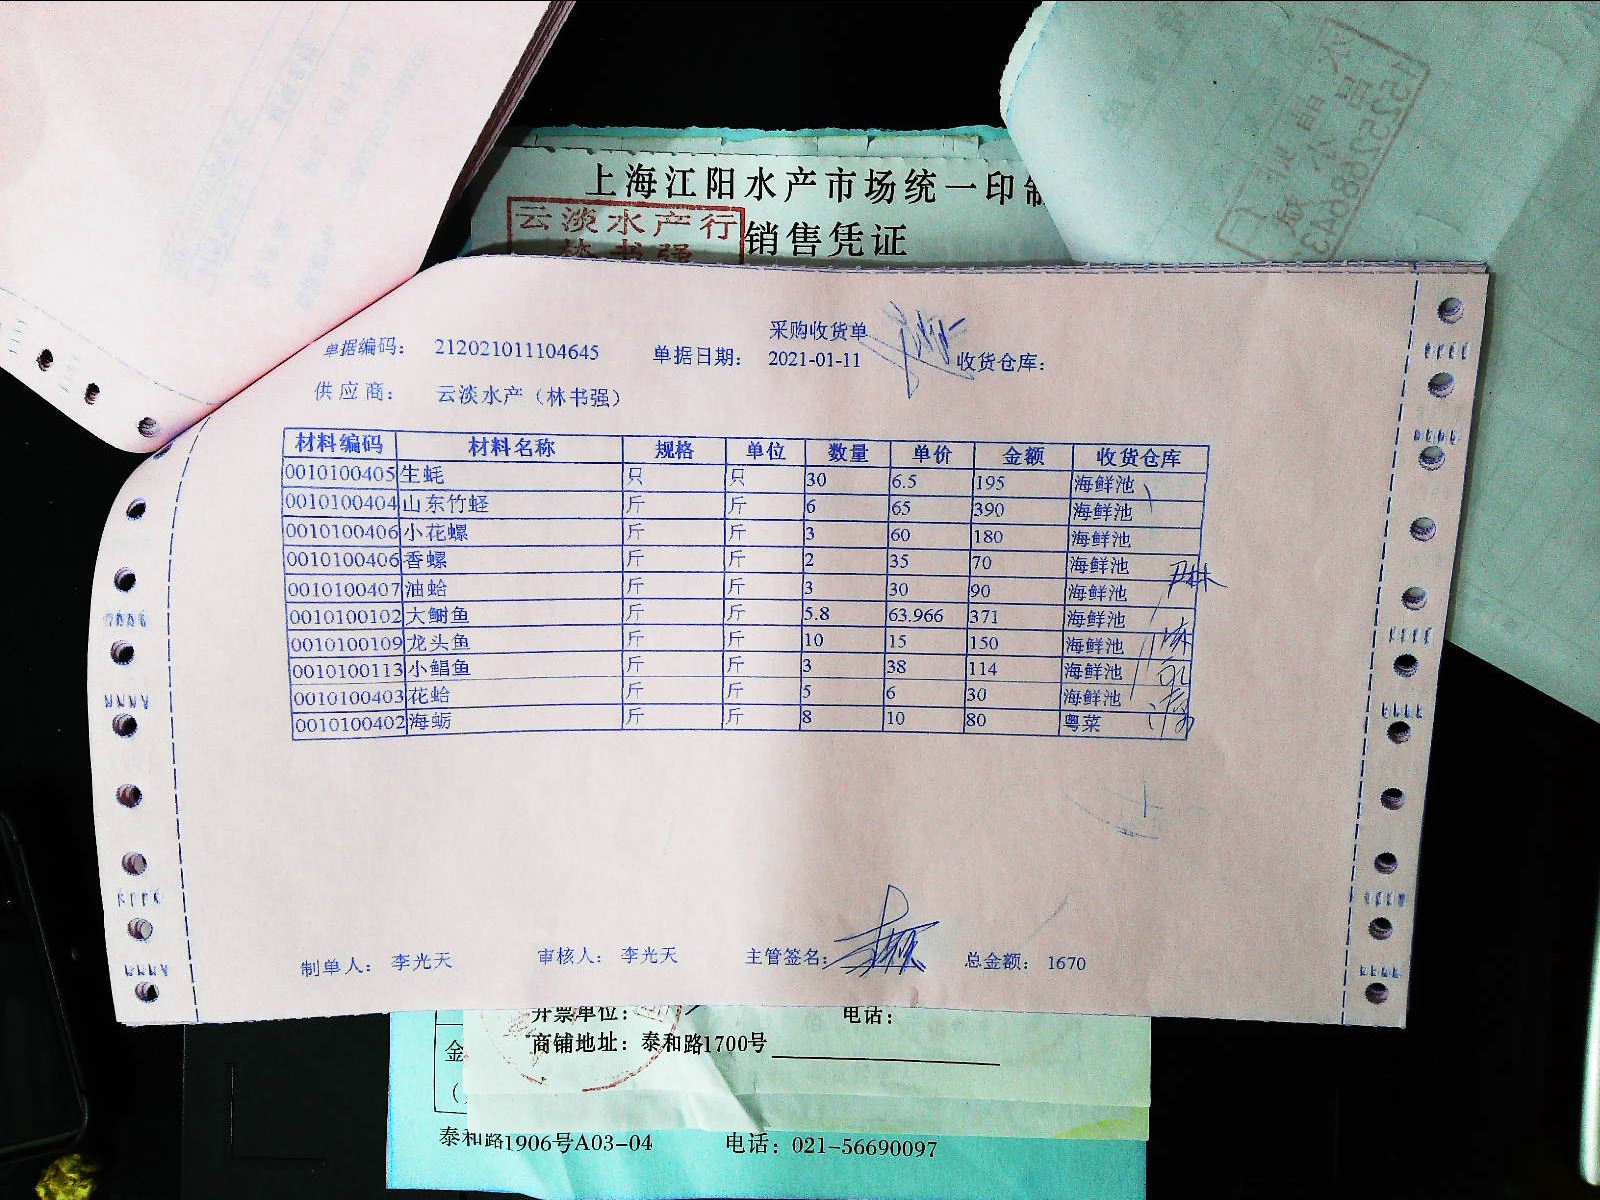 上海江阳水产市场统一印
云淡水产行
林书强
销售凭证
采购收货单
单据编码： 212021011104645 单据日期： 2021-01-11 收货仓库：
供应商： 云淡水产（林书强）
材料编码 材料名称 规格 单位 数量 单价 金额 收货仓库
0010100405 生蚝 只 只 30 6.5 195 海鲜池
0010100404 山东竹蛏 斤 斤 6 65 390 海鲜池
0010100406 小花螺 斤 斤 3 60 180 海鲜池
0010100406 香螺 斤 斤 2 35 70 海鲜池
0010100407 油蛤 斤 斤 3 30 90 海鲜池
0010100102 大鲥鱼 斤 斤 5.8 63.966 371 海鲜池
0010100109 龙头鱼 斤 斤 10 15 150 海鲜池
0010100113 小鲳鱼 斤 斤 3 38 114 海鲜池
0010100403 花蛤 斤 斤 5 6 30 海鲜池
0010100402 海蛎 斤 斤 8 10 80 粤菜
制单人： 李光天 审核人： 李光天 主管签名： 总金额： 1670
开票单位： 电话：
商铺地址：泰和路1700号
金
泰和路1906号A03-04 电话：021-56690097